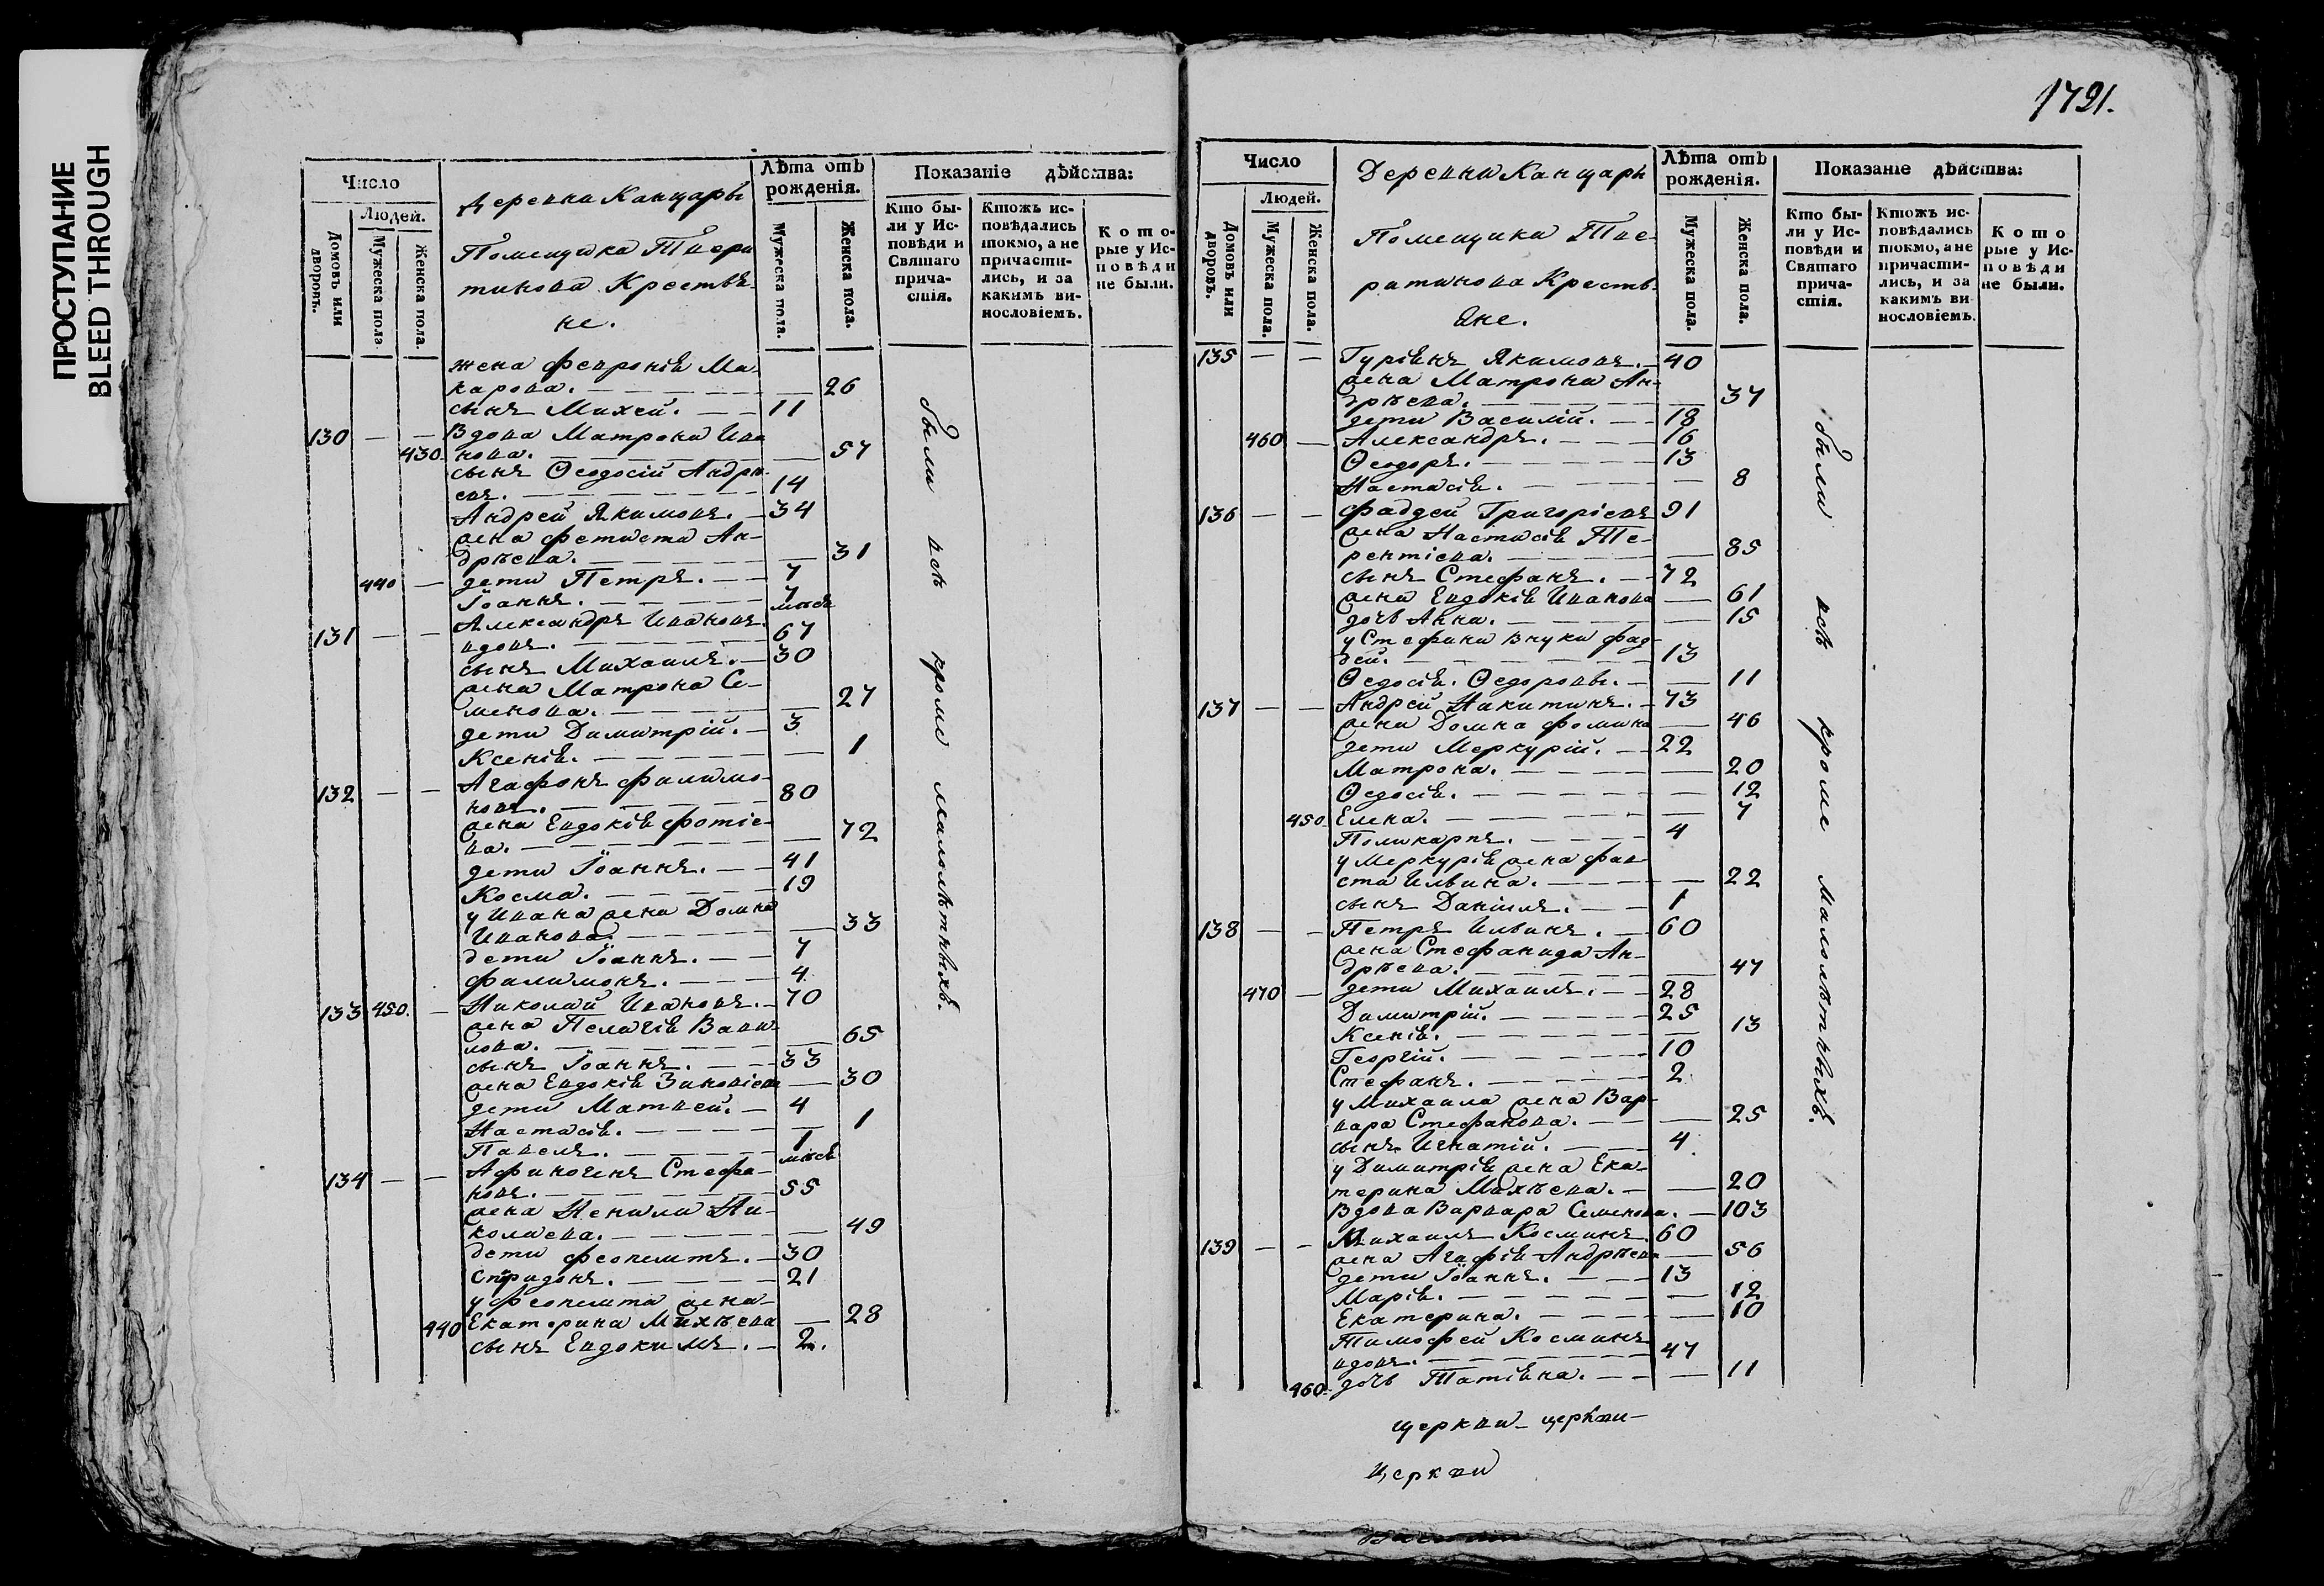 ПРОСТУПАНИЕ
BLEED THROUGH
Число
Людей.
Домовъ или дворовъ.
Мужеска пола.
Женска пола.
Деревна Канцарь
Помещика Твери
тинова Крествя
не.
Лѣта отъ
рожденія.
Мужеска пола.
Женска пола.
Показаніе дѣйства:
Кто бы-
ли у Ис-
повѣди и
Святаго
прича-
стія.
Ктожъ ис-
повѣдались
токмо, а не
причасти-
лись, и за
какимъ ви-
нословіемъ.
К о т о
рые у Ис-
п о в ѣ д и
не были.
жена Феврониѣ Ма
карова. — 26
сынъ Михей. — 11
130 — — Вдова Матрона Ива
430 нова. — 57
сынъ Ѳеодосій Андрѣ
евъ. — 14
Андрей Якимовъ. — 34
жена Фетиста Ан-
дрѣева. — 31
440 — дети Петръ. — 7
Іоаннъ. — 7 мѣсв
131 — — Александръ Ивановъ
вдовъ. — 67
сынъ Михаилъ. — 30
жена Матрона Се-
менова. — 27
дети Димитрій. — 3
Ксеніѣ. — 1
132 — — Агафонъ Филимо-
новъ. — 80
жена Евдокіѣ Фотіе-
ва. — 72
дети Іоаннъ. — 41
Косма. — 19
у Ивана жена Домна
Иванова. — 33
дети Іоаннъ. — 7
Филимонъ. — 4
133 450. — Николай Ивановъ. — 70
жена Пелагіѣ Вави
лова. — 65
сынъ Іоаннъ. — 33
жена Евдокіѣ Зиновіева — 30
дети Матвей. — 4
Настасіѣ. — 1
Павелъ. — 1 мѣсв
134 — — Афиногенъ Стефа-
новъ. — 55
жена Ненила Ни-
колаева. — 49
дети Феопемтъ. — 30
Спиридонъ. — 21
у Феопемта жена
440 Екатерина Михѣева — 28
сынъ Евдокимъ. — 2.
были всѣ кроме малолѣтныхъ.
1721.
Число
Людей.
Домовъ или дворовъ.
Мужеска пола.
Женска пола.
Деревни Канцарь
Помещика Тве-
ритинова Кресть-
ѣне.
Лѣта отъ
рожденія.
Мужеска пола.
Женска пола.
Показаніе дѣйства:
Кто бы-
ли у Ис-
повѣди и
Святаго
прича-
стія.
Ктожъ ис-
повѣдались
токмо, а не
причасти-
лись, и за
какимъ ви-
нословіемъ.
К о т о
рые у Ис-
п о в ѣ д и
не были.
135 — — Гуріѣнъ Якимовъ. — 40
жена Матрона Ан-
дрѣева. — 37
дети Василій. — 18
460 — Александръ. — 16
Ѳеодоръ. — 13
Настасіѣ. — 8
136 — — Фаддей Григоріевъ 91
жена Настасіѣ Те-
рентіева. — 85
сынъ Стефанъ. — 72
жена Евдокіѣ Иванова — 61
дочь Анна. — 15
у Стефана внуки Фад-
дей. — 13
Ѳедосіѣ. Ѳедоровы. — 11
137 — — Андрей Никитинъ. — 73
жена Домна Фомина — 46
дети Меркурій. — 22
Матрона. — 20
Ѳедосіѣ. — 12
450. Елена. — 7
Поликарпъ. — 4
у Меркуріѣ жена Фав
ста Ильина. — 22
сынъ Даніилъ. — 1
138 — — Петръ Ильинъ. — 60
жена Стефанида Ан-
дрѣева. — 47
470 — дети Михаилъ. — 28
Димитрій. — 25
Ксеніѣ. — 13
Георгій. — 10
Стефанъ. — 2
у Михаила жена Вар-
вара Стефанова. — 25
сынъ Игнатій. — 4
у Димитріѣ жена Ека-
терина Михѣева. — 20
Вдова Варвара Семенова. — 103
139 — — Михаилъ Косминъ. 60
жена Агафіѣ Андрѣева — 56
дети Іоаннъ. — 13
Маріѣ. — 12
Екатерина. — 10
Тимофей Косминъ
вдовъ. — 47
460. дочь Татіѣна. — 11
были всѣ кроме малолѣтныхъ.
церкви церкви
Церкви